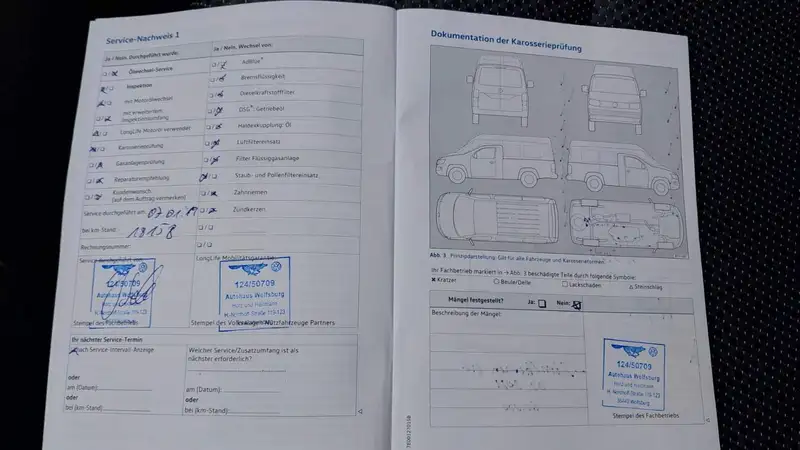 Service-Nachweis 1
Ja / Nein, Durchgeführt wurde:
Ja / Nein, Wechsel von:
Ölwechsel-Service
AdBlue®
Inspektion
Bremsflüssigkeit
mit Motorölwechsel
Dieselkraftstofffilter
mit erweitertem Inspektionsumfang
DSG®: Getriebeöl
LongLife Motoröl verwendet
Haldexkupplung: Öl
Karosserieprüfung
Luftfiltereinsatz
Gasanlagenprüfung
Filter Flüssiggasanlage
Reparaturempfehlung
Staub- und Pollenfiltereinsatz
Kundenwunsch
(auf dem Auftrag vermerken)
Zahnriemen
Service durchgeführt am: 07.01.19
Zündkerzen
bei km-Stand: 18158
Rechnungsnummer:
Service durchgeführt von:
LongLife Mobilitätsgarantie
124/50709
Autohaus Wolfsburg
Hotz und Heitmann
H.-Nordhoff-Straße 119-123
124/50709
Autohaus Wolfsburg
Hotz und Heitmann
H.-Nordhoff-Straße 119-123
Stempel des Fachbetriebs
Stempel des Volkswagen Nutzfahrzeuge Partners
Ihr nächster Service-Termin
nach Service-Intervall-Anzeige
Welcher Service/Zusatzumfang ist als nächster erforderlich?
oder
am (Datum):
am (Datum):
oder
oder
bei (km-Stand):
bei (km-Stand):
Dokumentation der Karosserieprüfung
Abb. 3 Prinzipdarstellung: Gilt für alle Fahrzeuge und Karosseriетypen.
Ihr Fachbetrieb markiert in → Abb. 3 beschädigte Teile durch folgende Symbole:
Kratzer
Beule/Delle
Lackschaden
Steinschlag
Mängel festgestellt?
Ja:
Nein:
Beschreibung der Mängel:
124/50709
Autohaus Wolfsburg
Hotz und Heitmann
H.-Nordhoff-Straße 119-123
38440 Wolfsburg
Stempel des Fachbetriebs